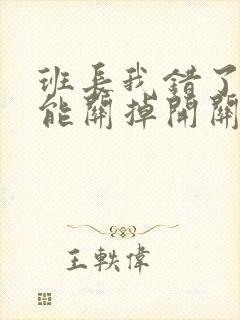 班長我錯了
能關掉開關
王軼偉